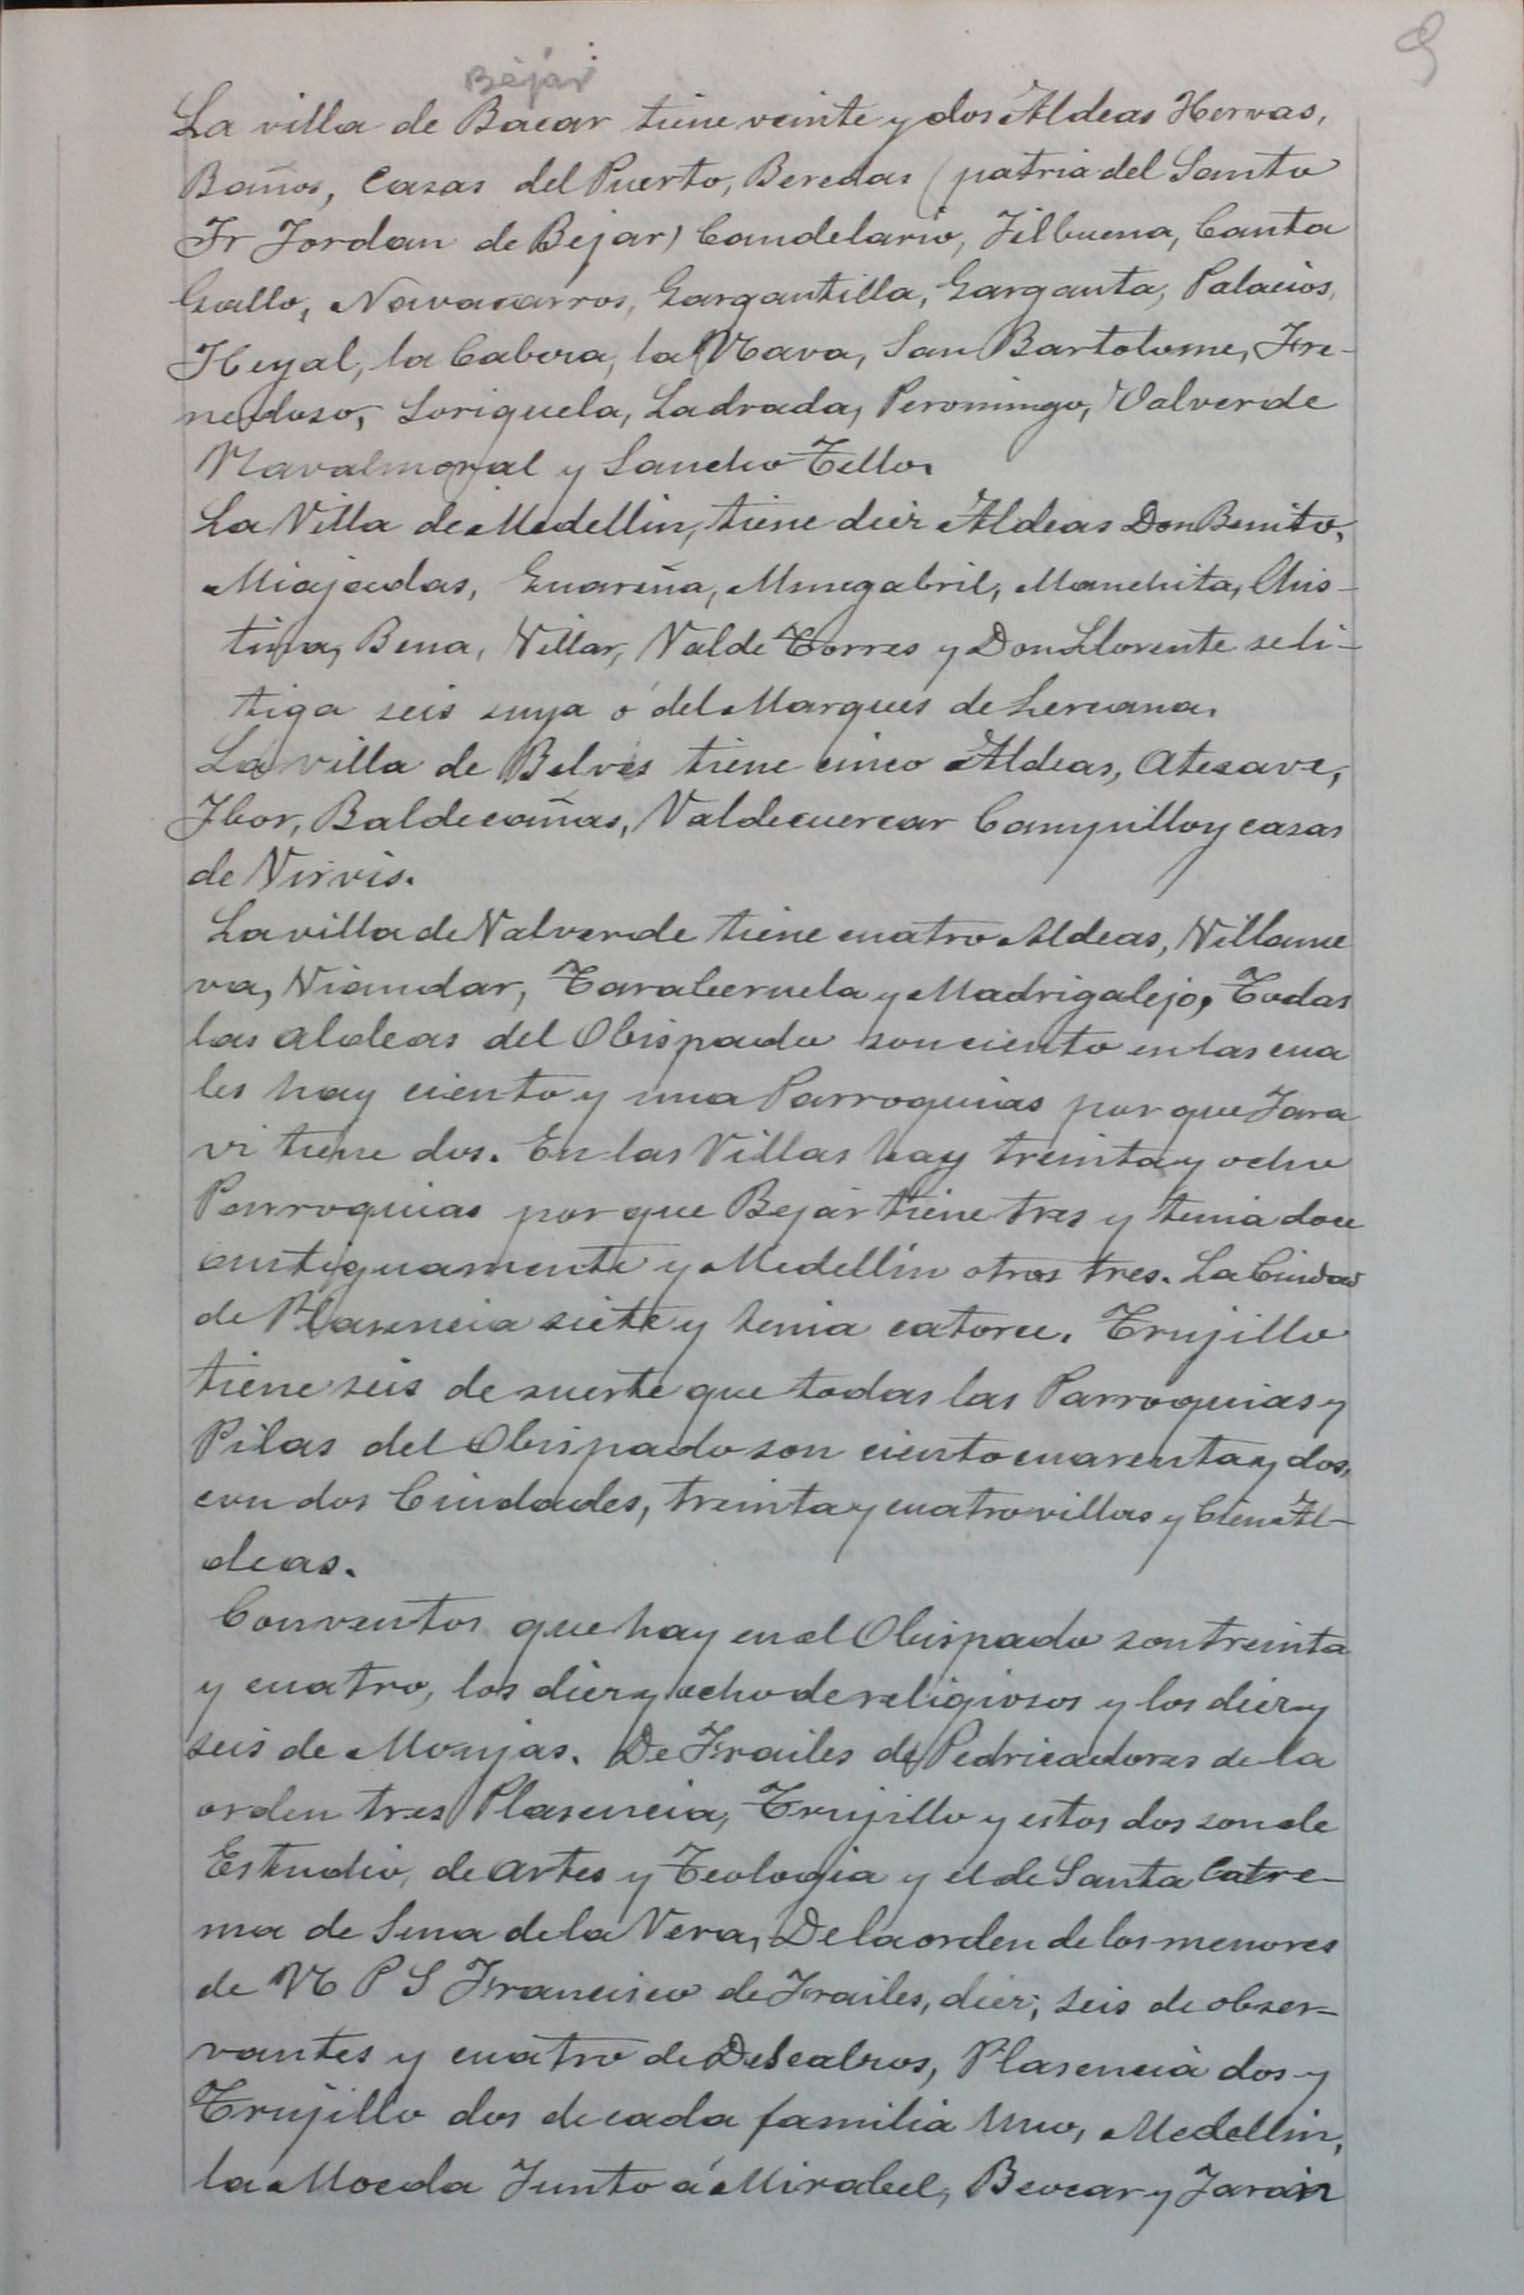 9
Béjar
La villa de Bacar tiene veinte y dos Aldeas Hervas,
Baños, Casas del Puerto, Beredas (patria del Santo
Fr Jordan de Bejar) Candelario, Filbuena, Canta
Gallo, Navacarros, Gargantilla, Garganta, Palacios,
Heyal, la Cabera, la Nava, San Bartolome, Fre-
nedoso, Soriquela, Ladrada, Peromingo, Valverde
Navalmoral y Sancho Tello.
La Villa de Medellin, tiene diez Aldeas Don Benito,
Miajadas, Guareña, Mengabril, Manchita, Chis-
tina, Bena, Villar, Valde Torres y Don Llorente se li-
tiga seis suya ó del Marques de Leruana.
La villa de Belves tiene cinco Aldeas, Atesave,
Ibor, Baldecañas, Valdecuercar Campillo y casas
de Virvis.
La villa de Valverde tiene cuatro Aldeas, Villanue
va, Viandar, Tarabernela y Madrigalejo, Todas
las aldeas del Obispado son ciento en las cua
les hay ciento y una Parroquias por que Jara
vi tiene dos. En las Villas hay treinta y ocho
Parroquias por que Bejar tiene tres y tenia doce
antiguamente y Medellin otras tres. La Ciudad
de Plasencia siete y tenia catorce. Trujillo
tiene seis de suerte que todas las Parroquias y
Pilas del Obispado son ciento cuarenta y dos,
con dos Ciudades, treinta y cuatro villas y Cien Al-
deas.
Conventos que hay en el Obispado son treinta
y cuatro, los diez y ocho de religiosos y los diez y
seis de Monjas. De Frailes de Pedricadores de la
orden tres Plasencia, Trujillo y estos dos son de
Estudio, de artes y Teologia y el de Santa Catre-
ma de Sena de la Vera, De la orden de los menores
de N P S Francisco de Frailes, diez; seis de obser-
vantes y cuatro de Descalzos, Plasencia dos y
Trujillo dos de cada familia uno, Medellin,
la Moeda Junto á Mirabel, Beocar y Jarain